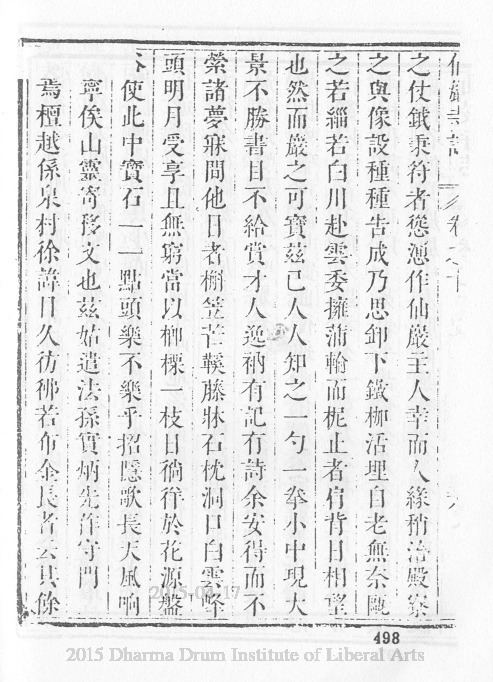 仙巖寺誌 卷之十
之仗鉞秉符者慫慂作仙巖主人幸而人緣稍洽殿寮
之與像設種種告成乃思卸下鐵枷活埋自老無奈甌
之若緇若白川赴雲委擁蒲輪而柅止者肩背日相望
也然而巖之可寶茲已人人知之一勺一拳小中現大
景不勝書目不給賞才人逸衲有記有詩余安得而不
縈諸夢寐間他日者榭笠芒鞵藤牀石枕洞口白雲峰
頭明月受享且無窮當以榔櫟一枝日徜徉於花源盤
谷使此中寶石一一點頭樂不樂乎招隱歌長天風响
寧俟山靈寄移文也茲姑遣法孫實炳先作守門
焉檀越係泉村徐諱日久彷彿若布金長者云其餘
498
2015 Dharma Drum Institute of Liberal Arts